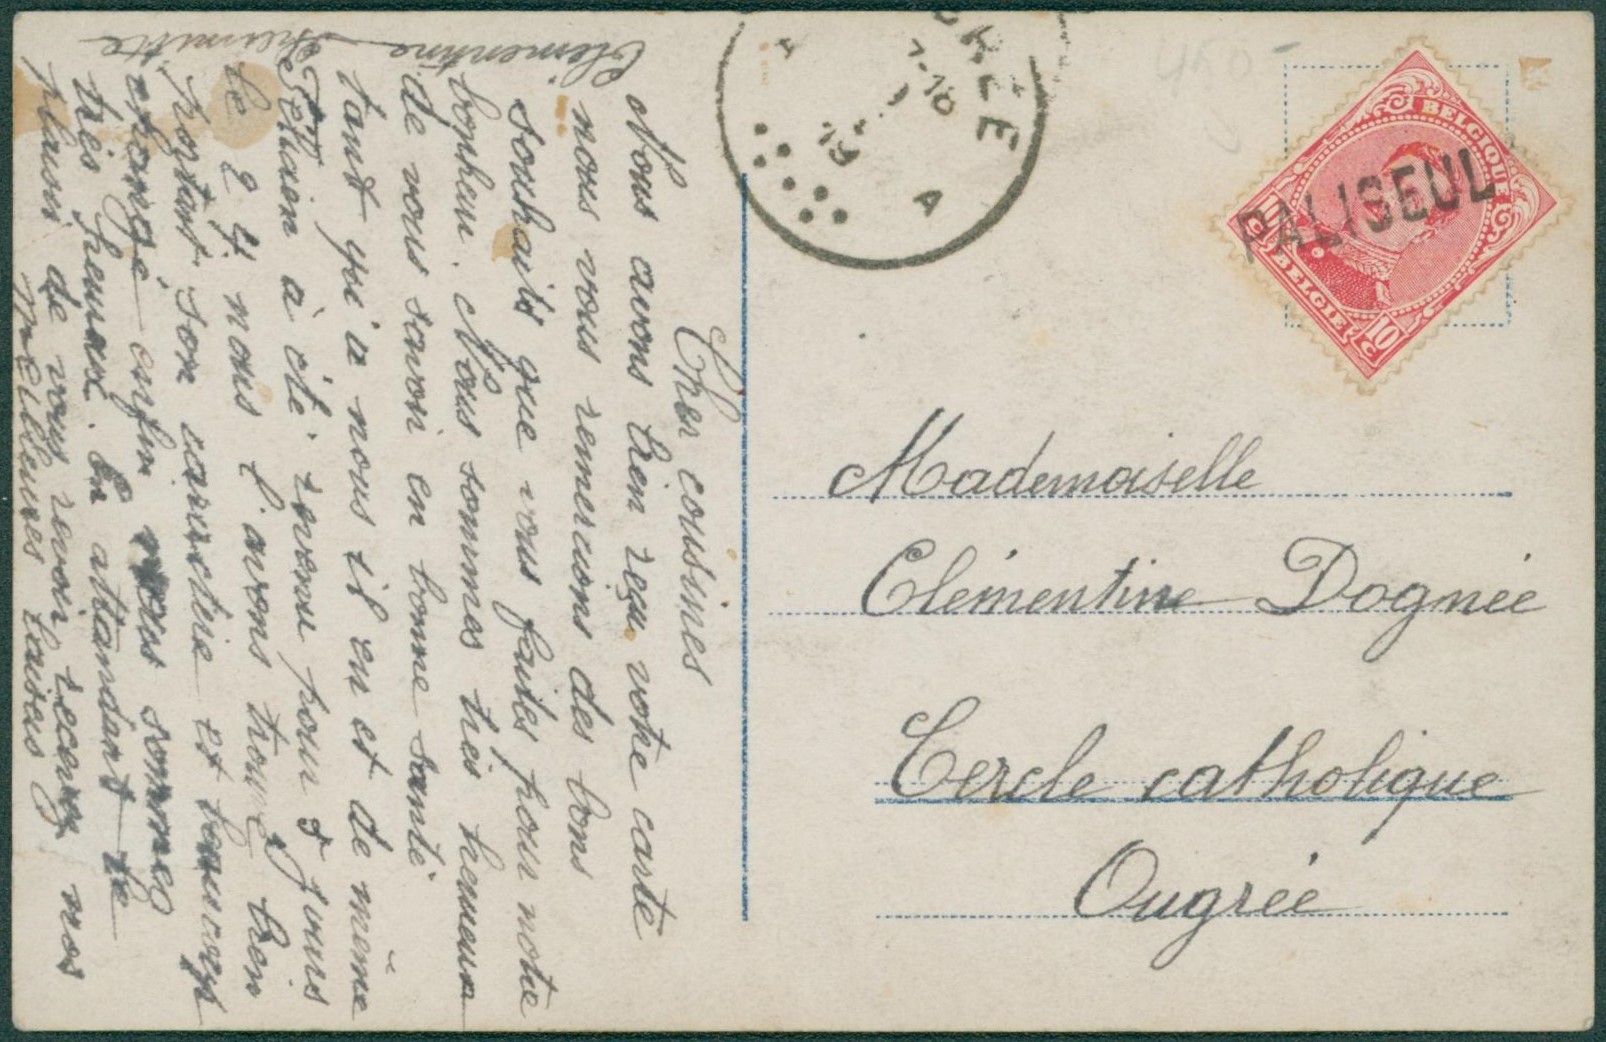 Cher cousines
Nous avons bien reçu votre carte
nous vous remercions des bons
souhaits que vous faites pour notre
bonheur. Nous sommes très heureux
de vous savoir en bonne santé
tant qu'a nous il en et de même
à été revenu pour 8 jours
le 24 nous l'avons trouvé bien
portant son carractère et beaucoup
changé enfin nous sommes
très heureux. En attandant le
plaisir de vous revoir recevez nos
meilleures baises
Clémentine
ORÉE
7-10
19
A
A
450-
BELGIQUE
BELGIE
10 c
10 c
PALISEUL
Mademoiselle
Clémentine Dognée
Cercle catholique
Ougrée